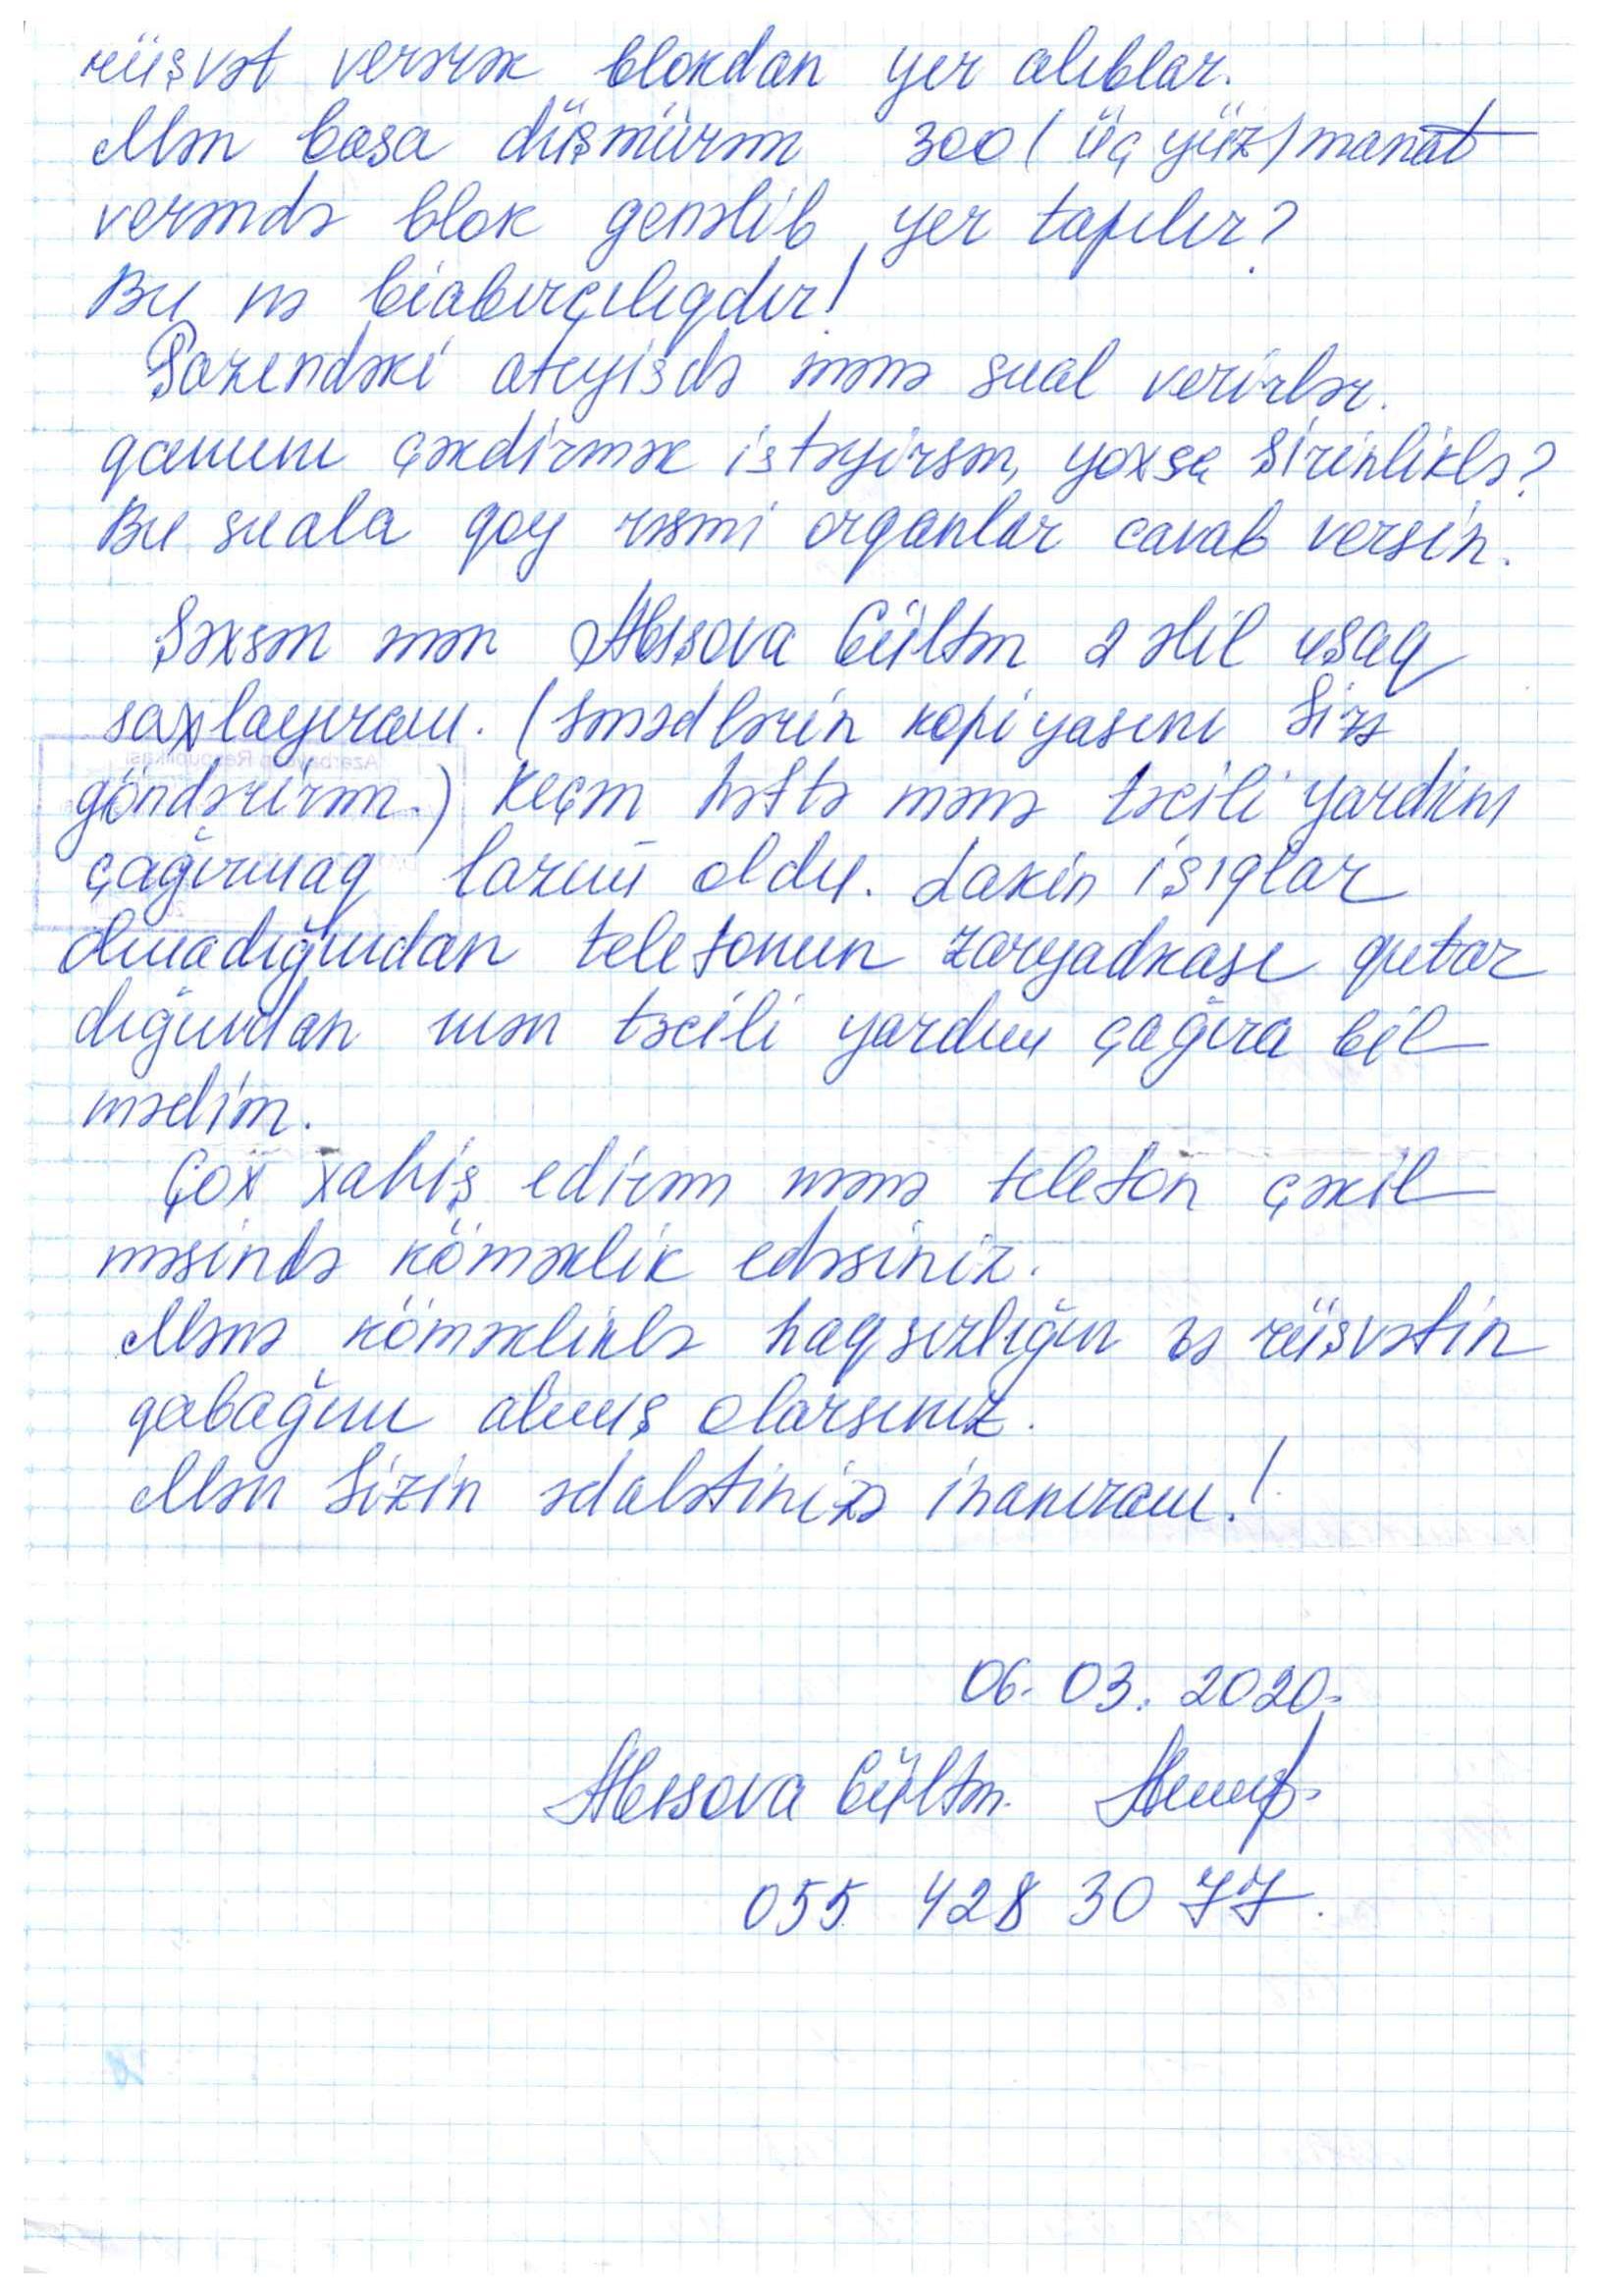 rüşvət verərək blokdan yer alıblar.
Mən başa düşmürəm 300 (üç yüz) manat
verəndə blok genəlib yer tapılır?
Bu nə biabırçılıqdır!
ateyisdə mənə sual verirlər.
qanuni çəkdirmək istəyirsən, yoxsa şirinliklə?
Bu suala qoy rəsmi orqanlar cavab versin.
Şəxsən mən Abışova Gültən 2 əlil uşaq
saxlayıram. (Sənədlərin kopiyasını Sizə
göndərirəm.) Keçən həftə mənə təcili yardım
çağırmaq lazım oldu. Lakin işıqlar
olmadığından telefonun zaryadkası qutar
dığından mən təcili yardım çağıra bil
mədim.
Çox xahiş edirəm mənə telefon çəkil
məsində köməklik edəsiniz.
Mənə köməkliklə haqsızlığın və rüşvətin
qabağını almış olarsınız.
Mən Sizin ədalətinizə inanıram!
06.03.2020.
Abışova Gültən.
055 428 30 77.